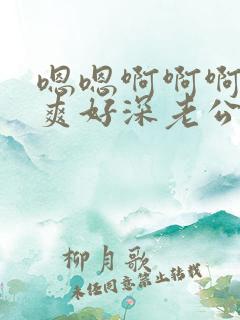 嗯嗯啊啊啊
爽好深老公
柳月歌
未经同意禁止转载